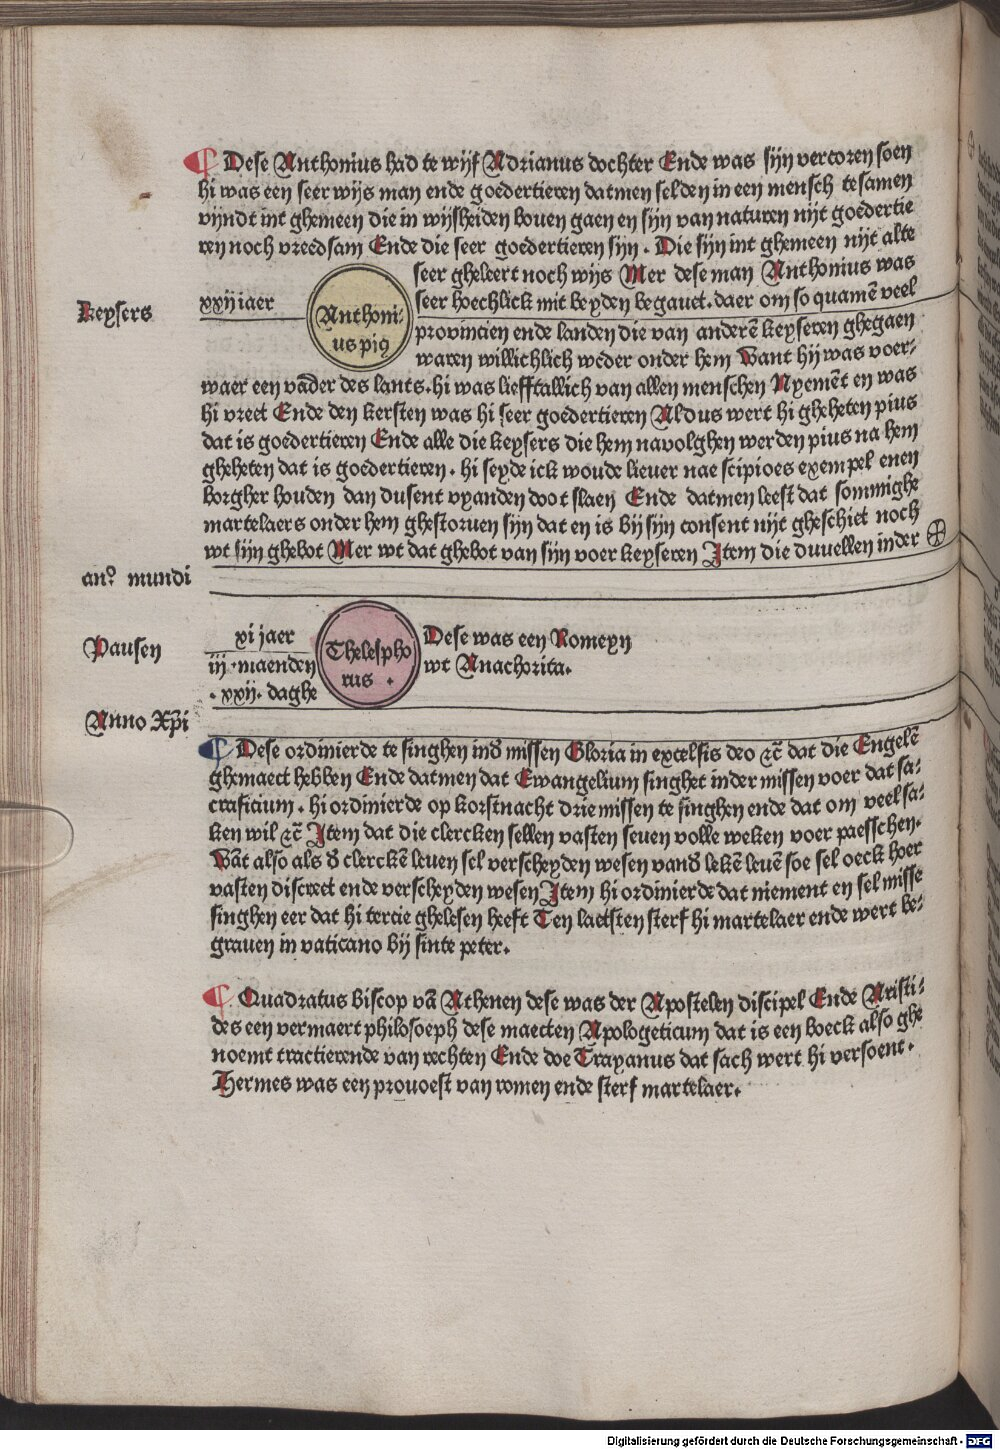 ¶ Dese Anthonius had te wijf Adrianus dochter Ende was sijn vercoren soen
hi was een seer wijs man ende goedertieren datmen selden in een mensch tesamen
vijndt int ghemeen die in wijsheiden bouen gaen en sijn van naturen nijt goedertie
ren noch vreedsam Ende die seer goedertieren sijn. Die sijn int ghemeen nijt alte
seer gheleert noch wijs Mer dese man Anthonius was
keysers
xxij iaer
Anthoni-
us piꝯ
seer hoechlick mit beyden begauet. daer om so quamē veel
prouincien ende landen die van anderē keyseren ghegaen
waren willichlich weder onder hem Want hij was voer-
waer een vāder des lants. hi was liefftallich van allen menschen Nyemēt en was
hi vreet Ende den kersten was hi seer goedertieren Aldus wert hi gheheten pius
dat is goedertieren Ende alle die keysers die hem navolghen werden pius na hem
gheheten dat is goedertieren. hi seyde ick woude lieuer nae scipioes exempel enen
borgher houden dan dusent vyanden doot slaen Ende datmen leest dat sommighe
martelaers onder hem ghestoruen sijn dat en is bij sijn consent nijt gheschiet noch
wt sijn ghebot Mer wt dat ghebot van sijn voer keyseren Item die duuellen in der
an? mundi
Pausen
xi jaer
iij. maenden
. xxij. daghe
Thelespho
rus .
Dese was een Romeyn
wt Anachorita.
Anno Xp̄i
¶ Dese ordinierde te singhen indʼ missen Gloria in excelsis deo ꝛc̄ dat die Engelē
ghemaect hebben Ende datmen dat Ewangelium singhet inder missen voer dat sa-
craficium. hi ordinierde op korstnacht drie missen te singhen ende dat om veel sa-
ken wil ꝛc̄ Item dat die clercken sellen vasten seuen volle weken voer paesschen.
Wāt also als dʼ clerckē leuen sel verscheyden wesen vandʼ lekē leuē soe sel oeck hoer
vasten discreet ende verscheyden wesen Item hi ordinierde dat niement en sel misse
singhen eer dat hi tercie ghelesen heeft Ten laetsten sterf hi martelaer ende wert be-
grauen in vaticano bij sinte peter.
¶ Quadratus biscop vā Athenen dese was der Apostelen discipel Ende Aristi-
des een vermaert philosoeph dese maecten Apologeticum dat is een boeck also ghe
noemt tractierende van rechten Ende doe Trayanus dat sach wert hi versoent.
Hermes was een prouoest van romen ende sterf martelaer.
Digitalisierung gefördert durch die Deutsche Forschungsgemeinschaft - DFG